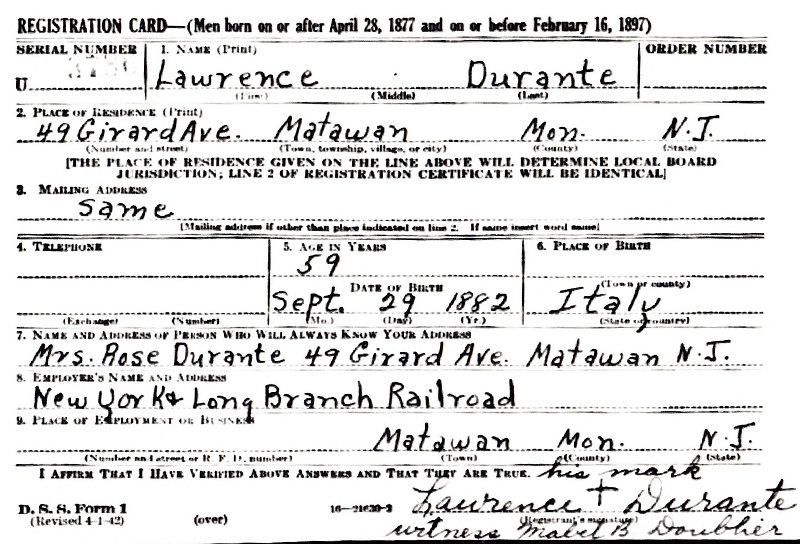 REGISTRATION CARD—(Men born on or after April 28, 1877 and on or before February 16, 1897)
SERIAL NUMBER 1. NAME (Print) ORDER NUMBER
U Lawrence Durante
(First) (Middle) (Last)
2. PLACE OF RESIDENCE (Print)
49 Girard Ave. Matawan Mon. N.J.
(Number and street) (Town, township, village, or city) (County) (State)
[THE PLACE OF RESIDENCE GIVEN ON THE LINE ABOVE WILL DETERMINE LOCAL BOARD
JURISDICTION; LINE 2 OF REGISTRATION CERTIFICATE WILL BE IDENTICAL]
3. MAILING ADDRESS
same
[Mailing address if other than place indicated on line 2. If same insert word same]
4. TELEPHONE 5. AGE IN YEARS 6. PLACE OF BIRTH
59
DATE OF BIRTH (Town or county)
Sept. 29 1882 Italy
(Exchange) (Number) (Mo.) (Day) (Yr.) (State or country)
7. NAME AND ADDRESS OF PERSON WHO WILL ALWAYS KNOW YOUR ADDRESS
Mrs. Rose Durante 49 Girard Ave. Matawan N.J.
8. EMPLOYER'S NAME AND ADDRESS
New York & Long Branch Railroad
9. PLACE OF EMPLOYMENT OR BUSINESS
Matawan Mon. N.J.
(Number and street or R. F. D. number) (Town) (County) (State)
I AFFIRM THAT I HAVE VERIFIED ABOVE ANSWERS AND THAT THEY ARE TRUE. his mark
D. S. S. Form 1 16—21630-2 Lawrence + Durante
(Revised 4-1-42) (over) (Registrant's signature)
witness Mabel B Doublier